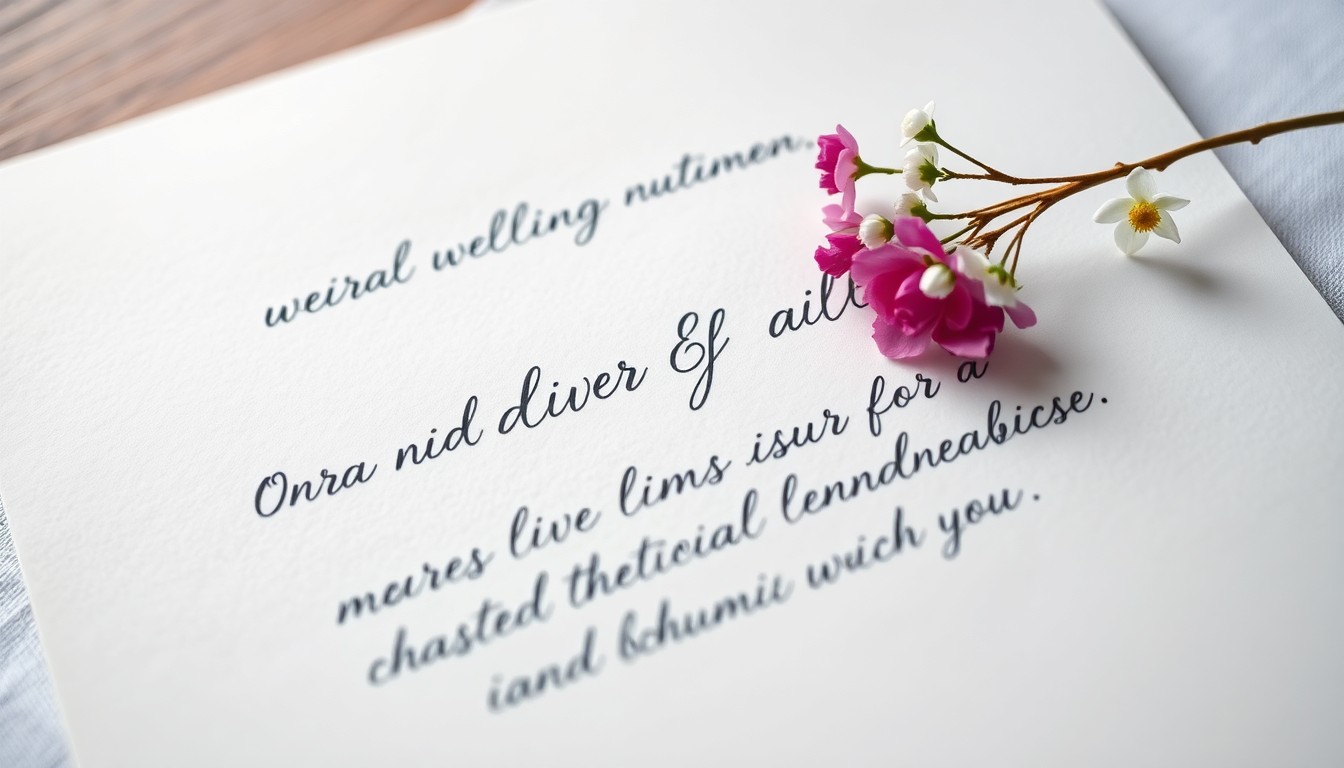 weiral welling nutimen.
Onra nid diver &
meures live lims isur for a
chasted theticial lenndneabicse.
iand wuich you.